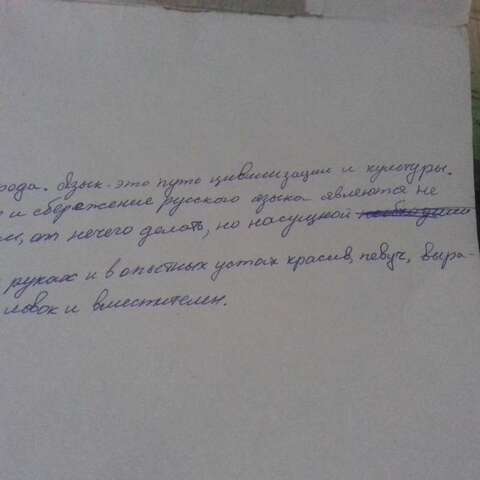 рода. Язык - это путь цивилизации и культуры.
и сбережение русского языка являются не
от нечего делать, но насущной
руках и в опытных устах красив, певуч, выра-
ловок и вместителен.